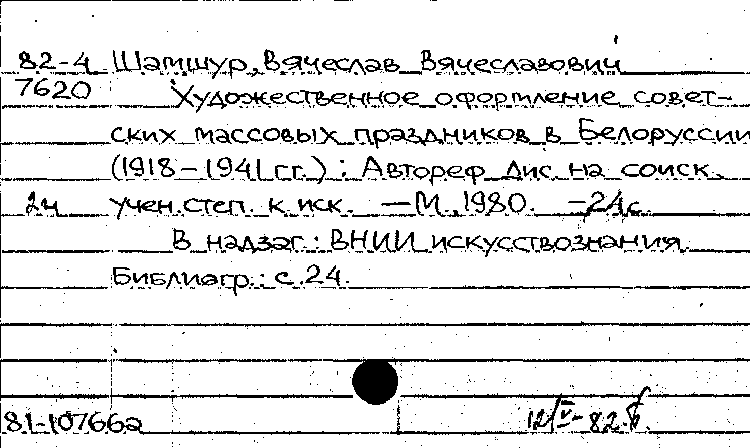 82-4 Шамшур, Вячеслав Вячеславович
7620 Художественное оформление совет-
ских массовых праздников в Белоруссии
(1918-1941 гг.): Автореф. дис. на соиск.
2ч учен. степ. к. иск. — М., 1980. — 24 с.
В надзаг.: ВНИИ искусствознания.
Библиогр.: с. 24.
81-107662 12/V-82.